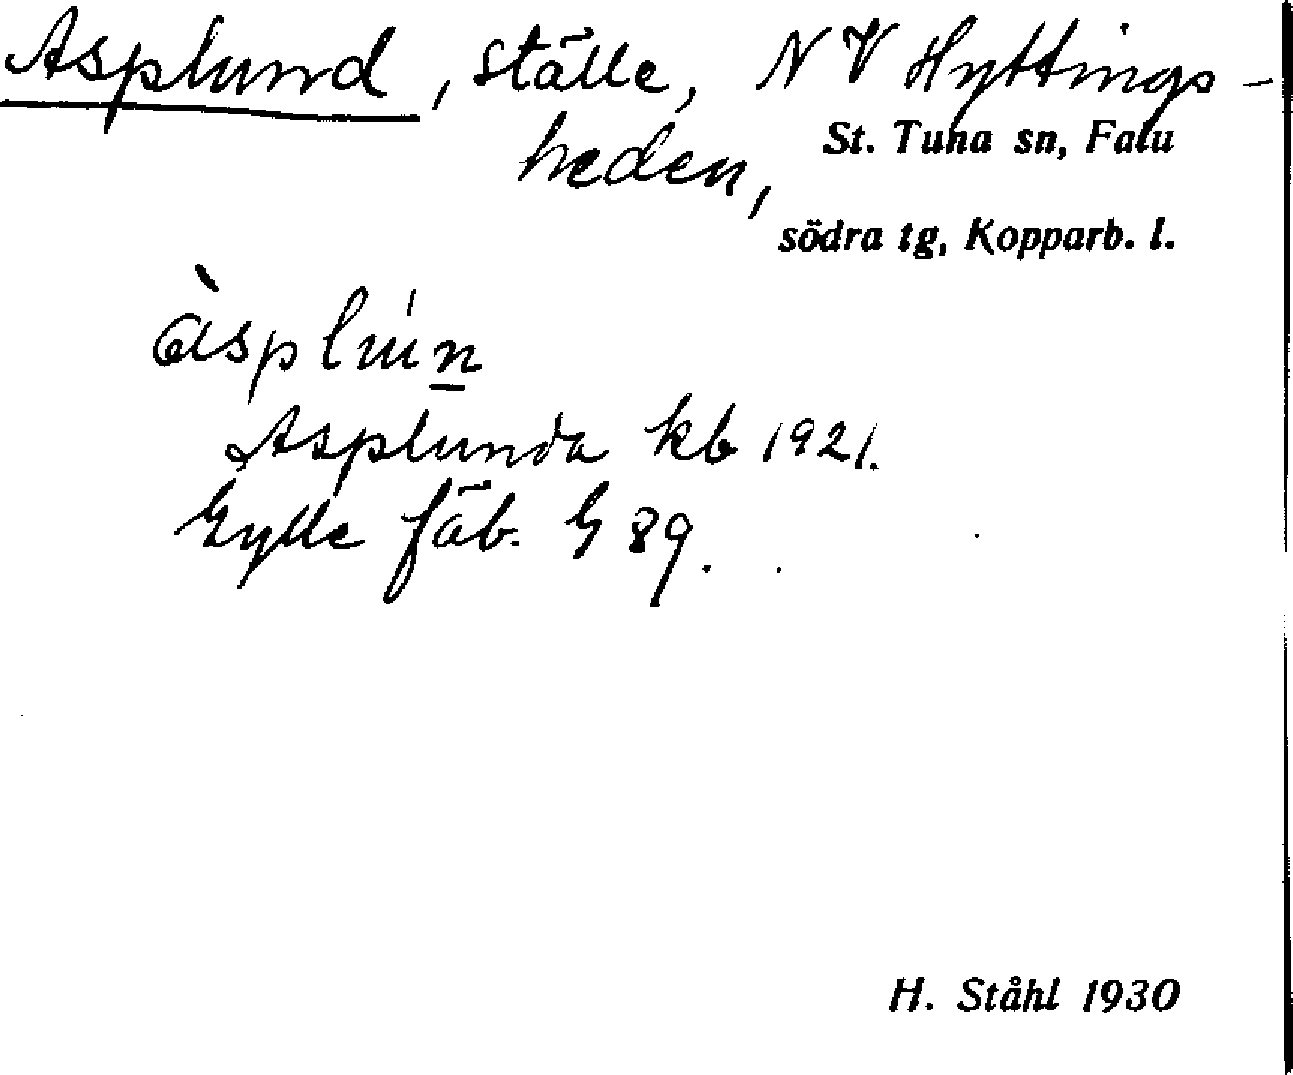 Asplund, ställe, NV Hyttings-
heden,
St. Tuna sn, Falu
södra tg, Kopparb. l.
àsplún
Asplunda kb 1921.
Gylle fäb. G 89.
H. Ståhl 1930